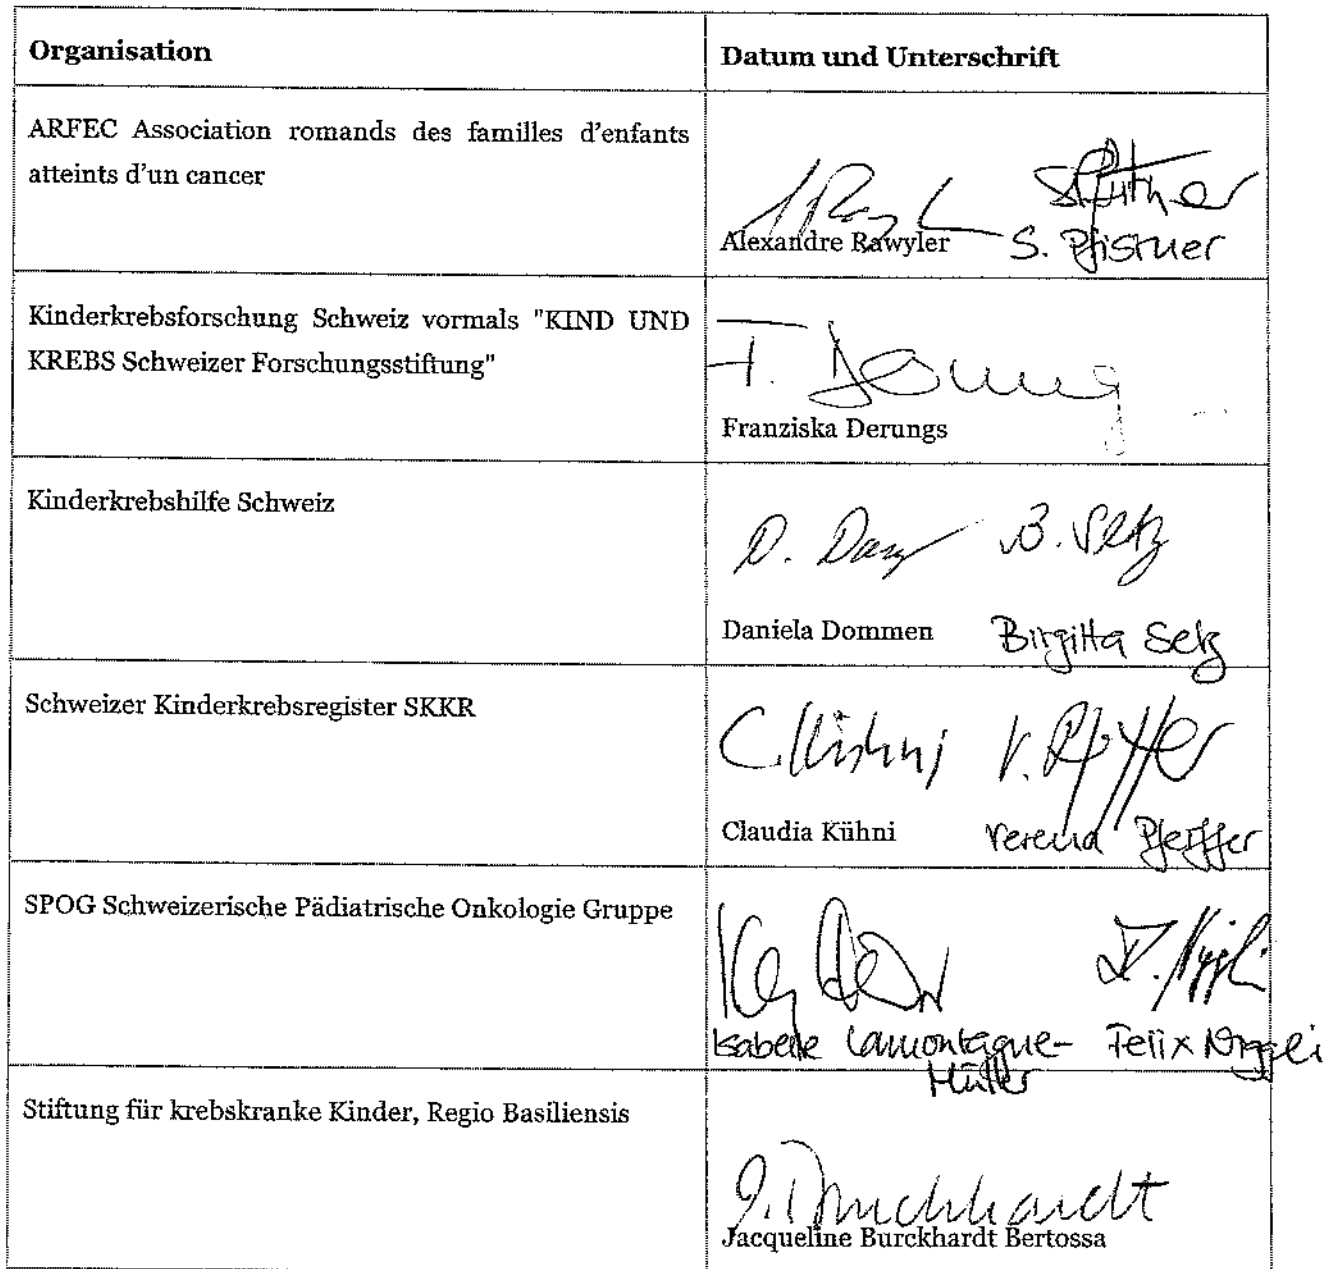 Organisation
Datum und Unterschrift
ARFEC Association romands des familles d'enfants
atteints d'un cancer
Alexandre Rawyler S. Pfistner
Kinderkrebsforschung Schweiz vormals "KIND UND
KREBS Schweizer Forschungsstiftung"
F. Derungs
Franziska Derungs
Kinderkrebshilfe Schweiz
B. Setz
Daniela Dommen Birgitta Setz
Schweizer Kinderkrebsregister SKKR
C. Kühni V. Pfeiffer
Claudia Kühni Verena Pfeiffer
SPOG Schweizerische Pädiatrische Onkologie Gruppe
F. Niggli
Isabelle Lamontagne- Felix Niggli
Müller
Stiftung für krebskranke Kinder, Regio Basiliensis
J. Burckhardt
Jacqueline Burckhardt Bertossa